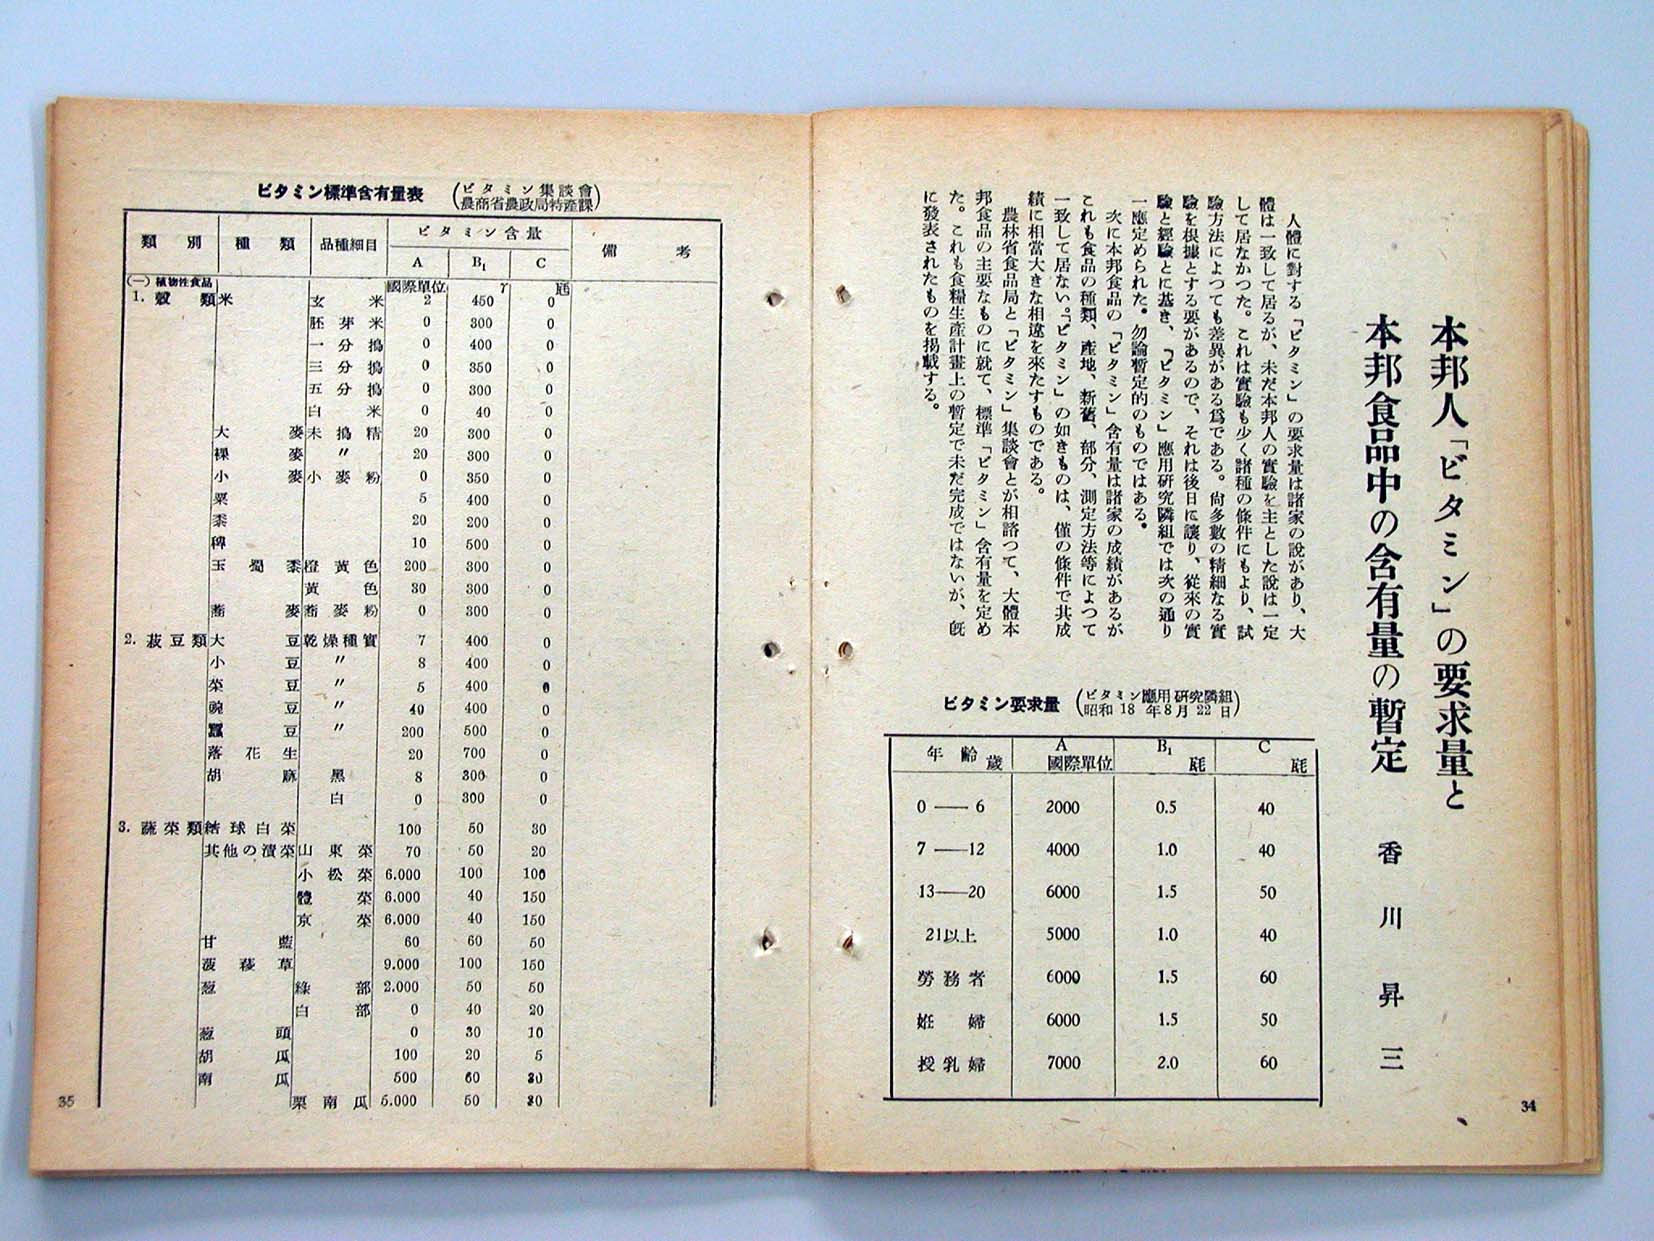 本邦人「ビタミン」の要求量と
本邦食品中の含有量の暫定
香川昇三
人體に對する「ビタミン」の要求量は諸家の說があり、大
體は一致して居るが、未だ本邦人の實驗を主とした說は一定
して居なかつた。これは實驗も少く諸種の條件にもより、試
驗方法によつても差異がある爲である。尙多數の精細なる實
驗を根據とする要があるので、それは後日に讓り、從來の實
驗と經驗とに基き、「ビタミン」應用硏究隣組では次の通り
一應定められた。勿論暫定的のものではある。
次に本邦食品の「ビタミン」含有量は諸家の成績があるが
これも食品の種類、產地、新舊、部分、測定方法等によつて
一致して居ない。「ビタミン」の如きものは、僅の條件で其成
績に相當大きな相違を來たすものである。
農林省食品局と「ビタミン」集談會とが相諮つて、大體本
邦食品の主要なものに就て、標準「ビタミン」含有量を定め
た。これも食糧生產計畫上の暫定で未だ完成ではないが、旣
に發表されたものを揭載する。
ビタミン要求量 (ビタミン應用硏究隣組
昭和18年8月22日)
年齡 歲 A 國際單位 B₁ 瓱 C 瓱
0——6 2000 0.5 40
7——12 4000 1.0 40
13——20 6000 1.5 50
21以上 5000 1.0 40
勞務者 6000 1.5 60
姙婦 6000 1.5 50
授乳婦 7000 2.0 60
34
ビタミン標準含有量表 (ビタミン集談會
農商省農政局特產課)
類別 種類 品種細目 ビタミン含量 備考
A B₁ C
(一)植物性食品 國際單位 γ 瓱
1. 穀類 米 玄米 2 450 0
胚芽米 0 300 0
一分搗 0 400 0
三分搗 0 350 0
五分搗 0 300 0
白米 0 40 0
大麥 未搗精 20 300 0
裸麥 〃 20 300 0
小麥 小麥粉 0 350 0
粟 5 400 0
黍 20 200 0
稗 10 500 0
玉蜀黍 橙黃色 200 300 0
黃色 30 300 0
蕎麥 蕎麥粉 0 300 0
2. 菽豆類 大豆 乾燥種實 7 400 0
小豆 〃 8 400 0
菜豆 〃 5 400 0
豌豆 〃 40 400 0
蠶豆 〃 200 500 0
落花生 20 700 0
胡麻 黑 8 300 0
白 0 300 0
3. 蔬菜類 結球白菜 100 50 30
其他の漬菜 山東菜 70 50 20
小松菜 6.000 100 100
體菜 6.000 40 150
京菜 6.000 40 150
甘藍 60 60 50
菠薐草 9.000 100 150
葱 綠部 2.000 50 50
白部 0 40 20
葱頭 0 30 10
胡瓜 100 20 5
南瓜 500 60 30
栗南瓜 5.000 50 30
35